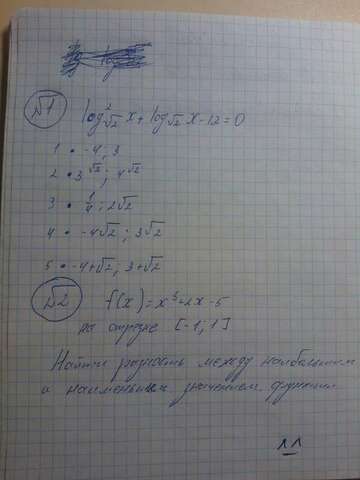 №1
log²√2 x + log√2 x - 12 = 0
1 • -4; 3
2 • 3^√2; 4^√2
3 • 1/4; 2√2
4 • -4√2; 3√2
5 • -4+√2; 3+√2
№2 f(x) = x³+2x-5
на отрезке [-1; 1]
Найти разность между наибольшим
и наименьшим значением функции